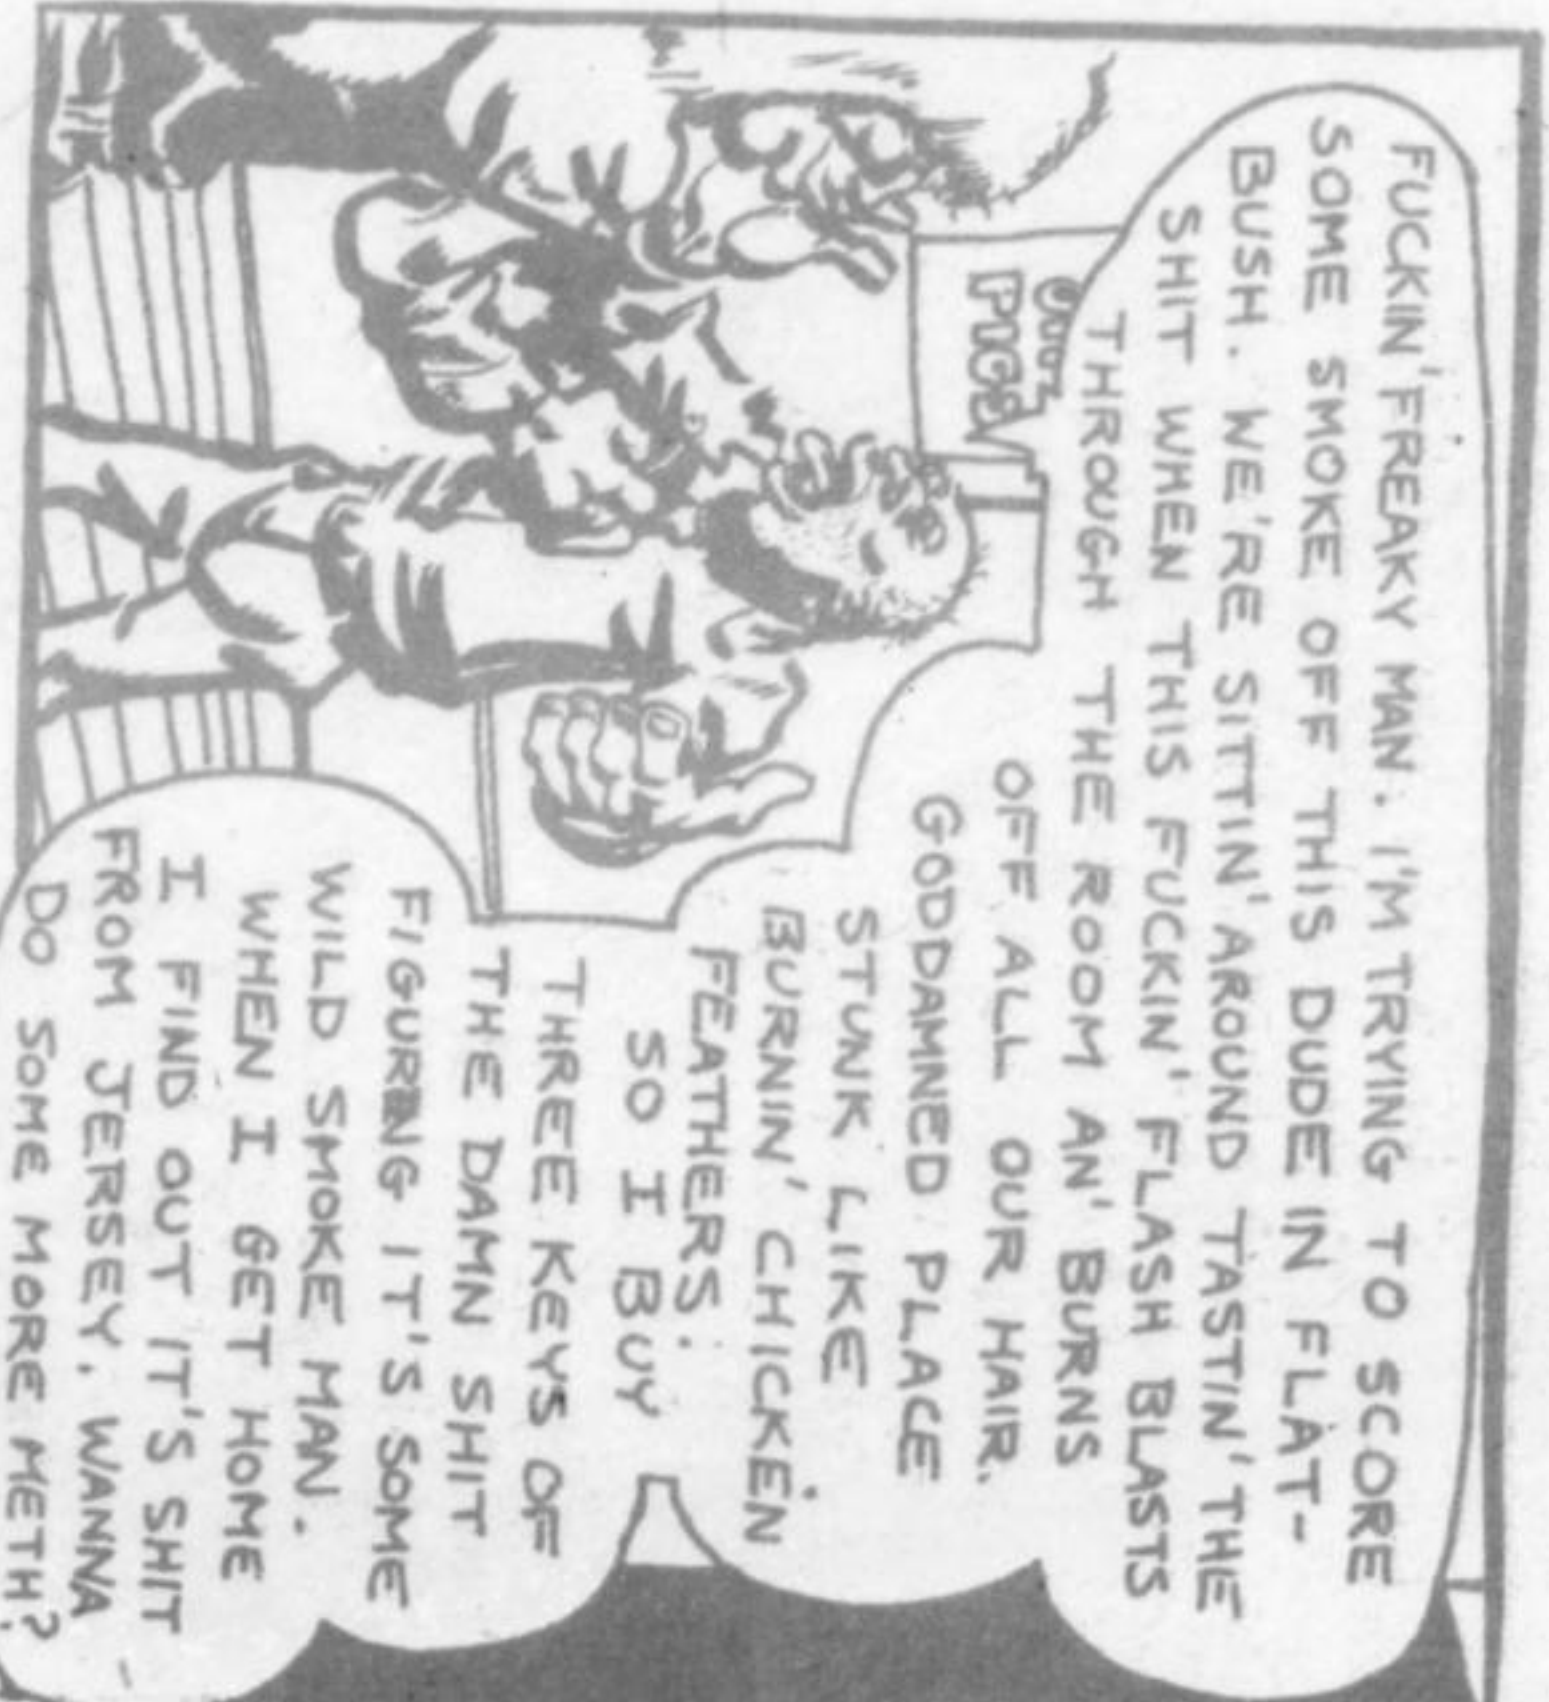 FUCKIN' FREAKY MAN. I'M TRYING TO SCORE
SOME SMOKE OFF THIS DUDE IN FLAT-
BUSH. WE'RE SITTIN' AROUND TASTIN' THE
SHIT WHEN THIS FUCKIN' FLASH BLASTS
THROUGH THE ROOM AN' BURNS
OFF ALL OUR HAIR.
GODDAMNED PLACE
STUNK LIKE
BURNIN' CHICKEN
FEATHERS.
SO I BUY
THREE KEYS OF
THE DAMN SHIT
FIGURING IT'S SOME
WILD SMOKE MAN.
WHEN I GET HOME
I FIND OUT IT'S SHIT
FROM JERSEY. WANNA
DO SOME MORE METH?
PIGS